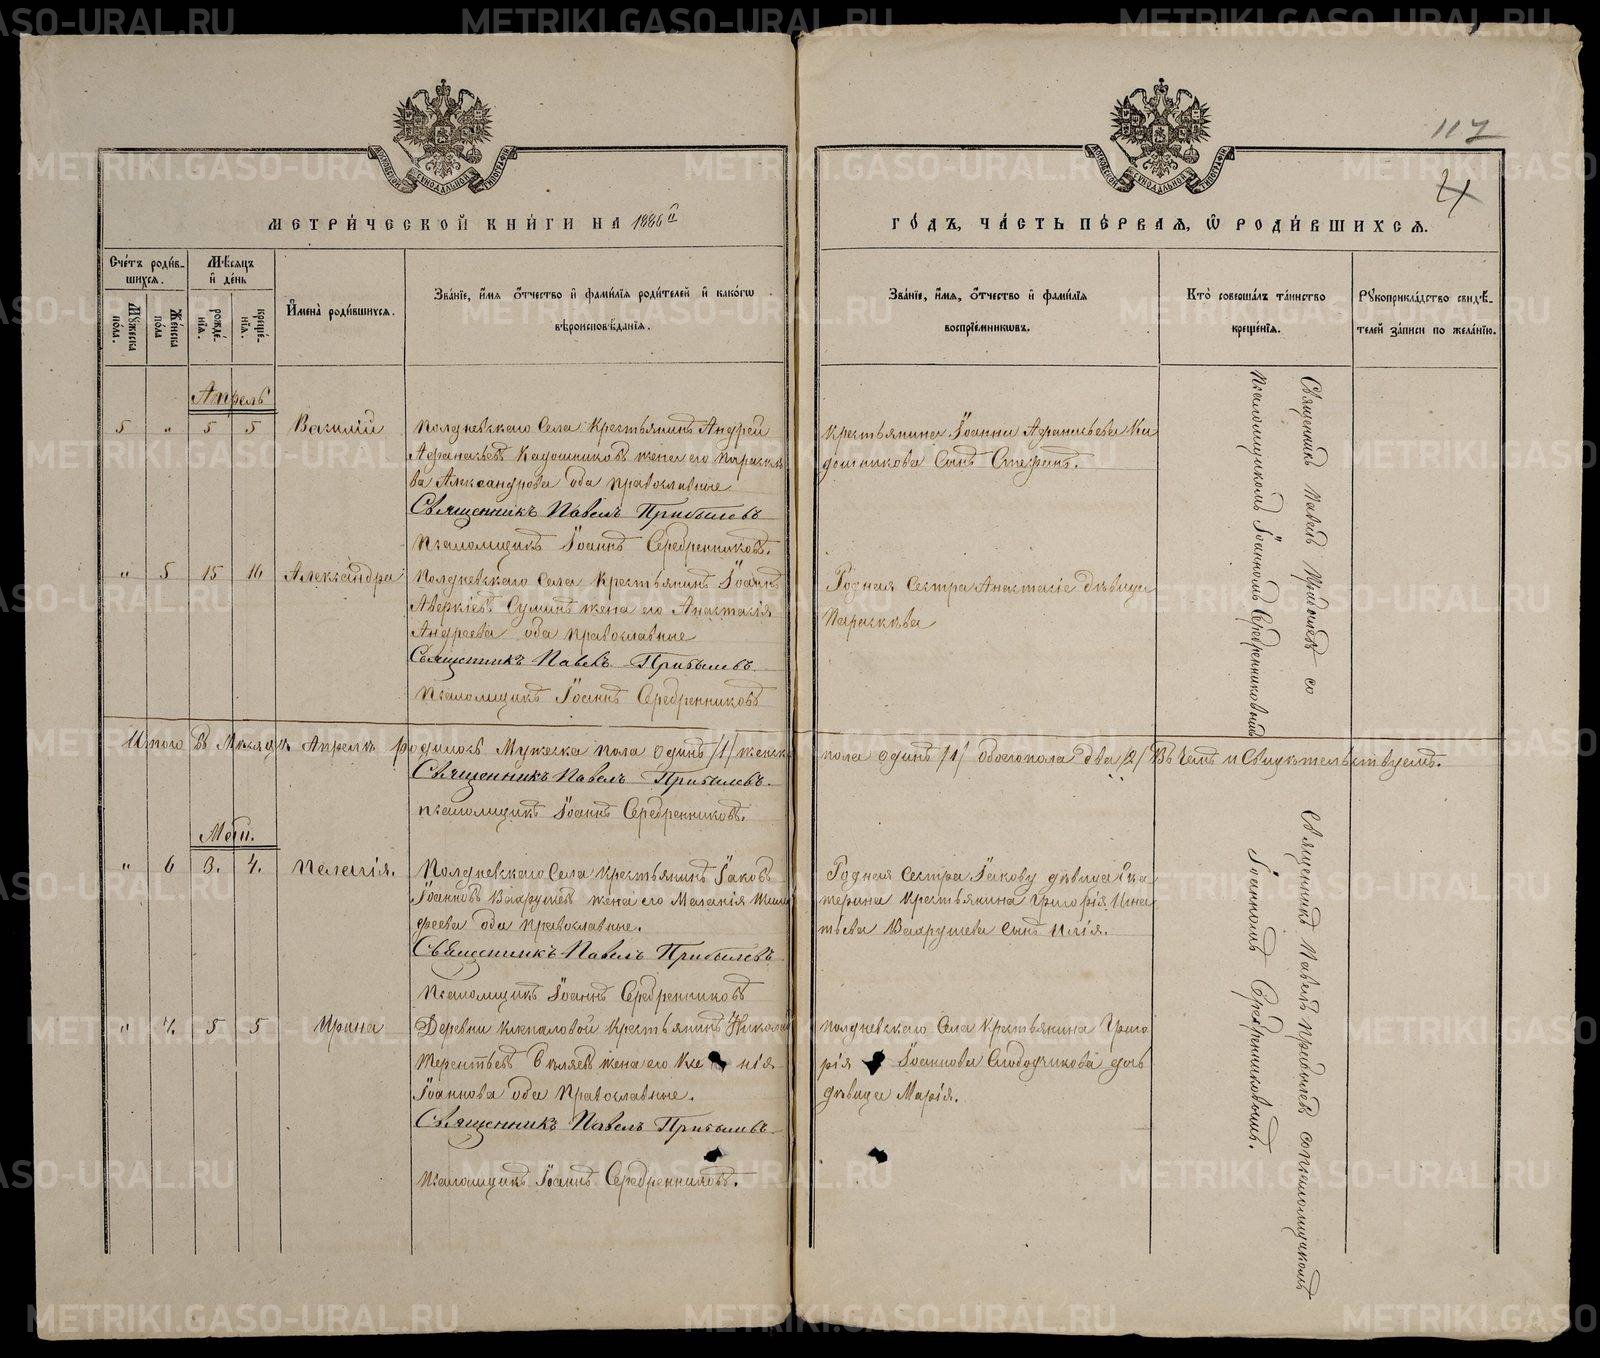 METRIKI.GASO-URAL.RU
117
4
МЕТРИ́ЧЕСКОЙ КНИ́ГИ НА 1886й
ГО́ДЪ, ЧА́СТЬ ПЕ́РВАЯ, Ѡ РОДИ́ВШИХСЯ.
Сче́тъ роди́в-
шихся.
Мѣ́сяцъ
и де́нь
Мꙋжеска по́ла.
Же́нска по́ла
рожде́-
нія.
креще́-
нія.
И́мена̀ роди́вшихся.
Зва́ніе, и́мя о́тчество и фами́лія роди́телей и како́гѡ
вѣроисповѣ́данія.
Зва́ніе, и́мя, о́тчество и фами́лія
воспріе́мниковъ.
Кто̀ соверша́лъ та́инство
креще́нія.
Рꙋкоприкла́дство свидѣ́-
телей за́писи по жела́нію.
Апрель
5 " 5 5 Василій
Полдневскаго Села Крестьянинъ Андрей
Афанасьевъ Кадошниковъ жена его Параске
ва Александрова оба православные
Священникъ Павелъ Прибылевъ
Псаломщикъ Іоаннъ Серебренниковъ.
Крестьянина Іоанна Афанасьева Ка
дошникова Сынъ Стефанъ.
Священникъ Павелъ Прибылевъ со
Псаломщикомъ Іоанномъ Серебренниковымъ
" 5 15 16 Александра
Полдневскаго Села Крестьянинъ Іоаннъ
Аверкіевъ Суминъ жена его Анастасія
Андреева оба православные
Священникъ Павелъ Прибылевъ
Псаломщикъ Іоаннъ Серебренниковъ
Родная Сестра Анастасіе дѣвица
Параскева
Итого въ Мѣсяцѣ Апрелѣ родилось Мужеска пола одинъ /1/ женска
пола одинъ /1/ обоего пола два /2/ Въ чемъ и Свидѣтельствуемъ.
Священникъ Павелъ Прибылевъ.
Псаломщикъ Іоаннъ Серебренниковъ.
Май.
" 6 3. 4. Пелагія.
Полдневскаго Села Крестьянинъ Іаковъ
Іоанновъ Вахрушевъ жена его Меланія
фѣева оба православные.
Священникъ Павелъ Прибылевъ
Псаломщикъ Іоаннъ Серебренниковъ
Родная Сестра Іакову дѣвица Ека
терина Крестьянина Григорія Игна
тьева Вахрушева Сынъ Илія.
Священникъ Павелъ Прибылевъ со Псаломщикомъ
Іоанномъ Серебренниковымъ.
" 7. 5 5 Ирина
Деревни Кяпаловой Крестьянинъ Никола
Терентьевъ жена его Ксе нія
Іоаннова оба Православные.
Священникъ Павелъ Прибылевъ
Псаломщикъ Іоаннъ Серебренниковъ.
Полдневскаго Села Крестьянина Григо
рія Іоаннова Слободчикова дочь
дѣвица Марія.